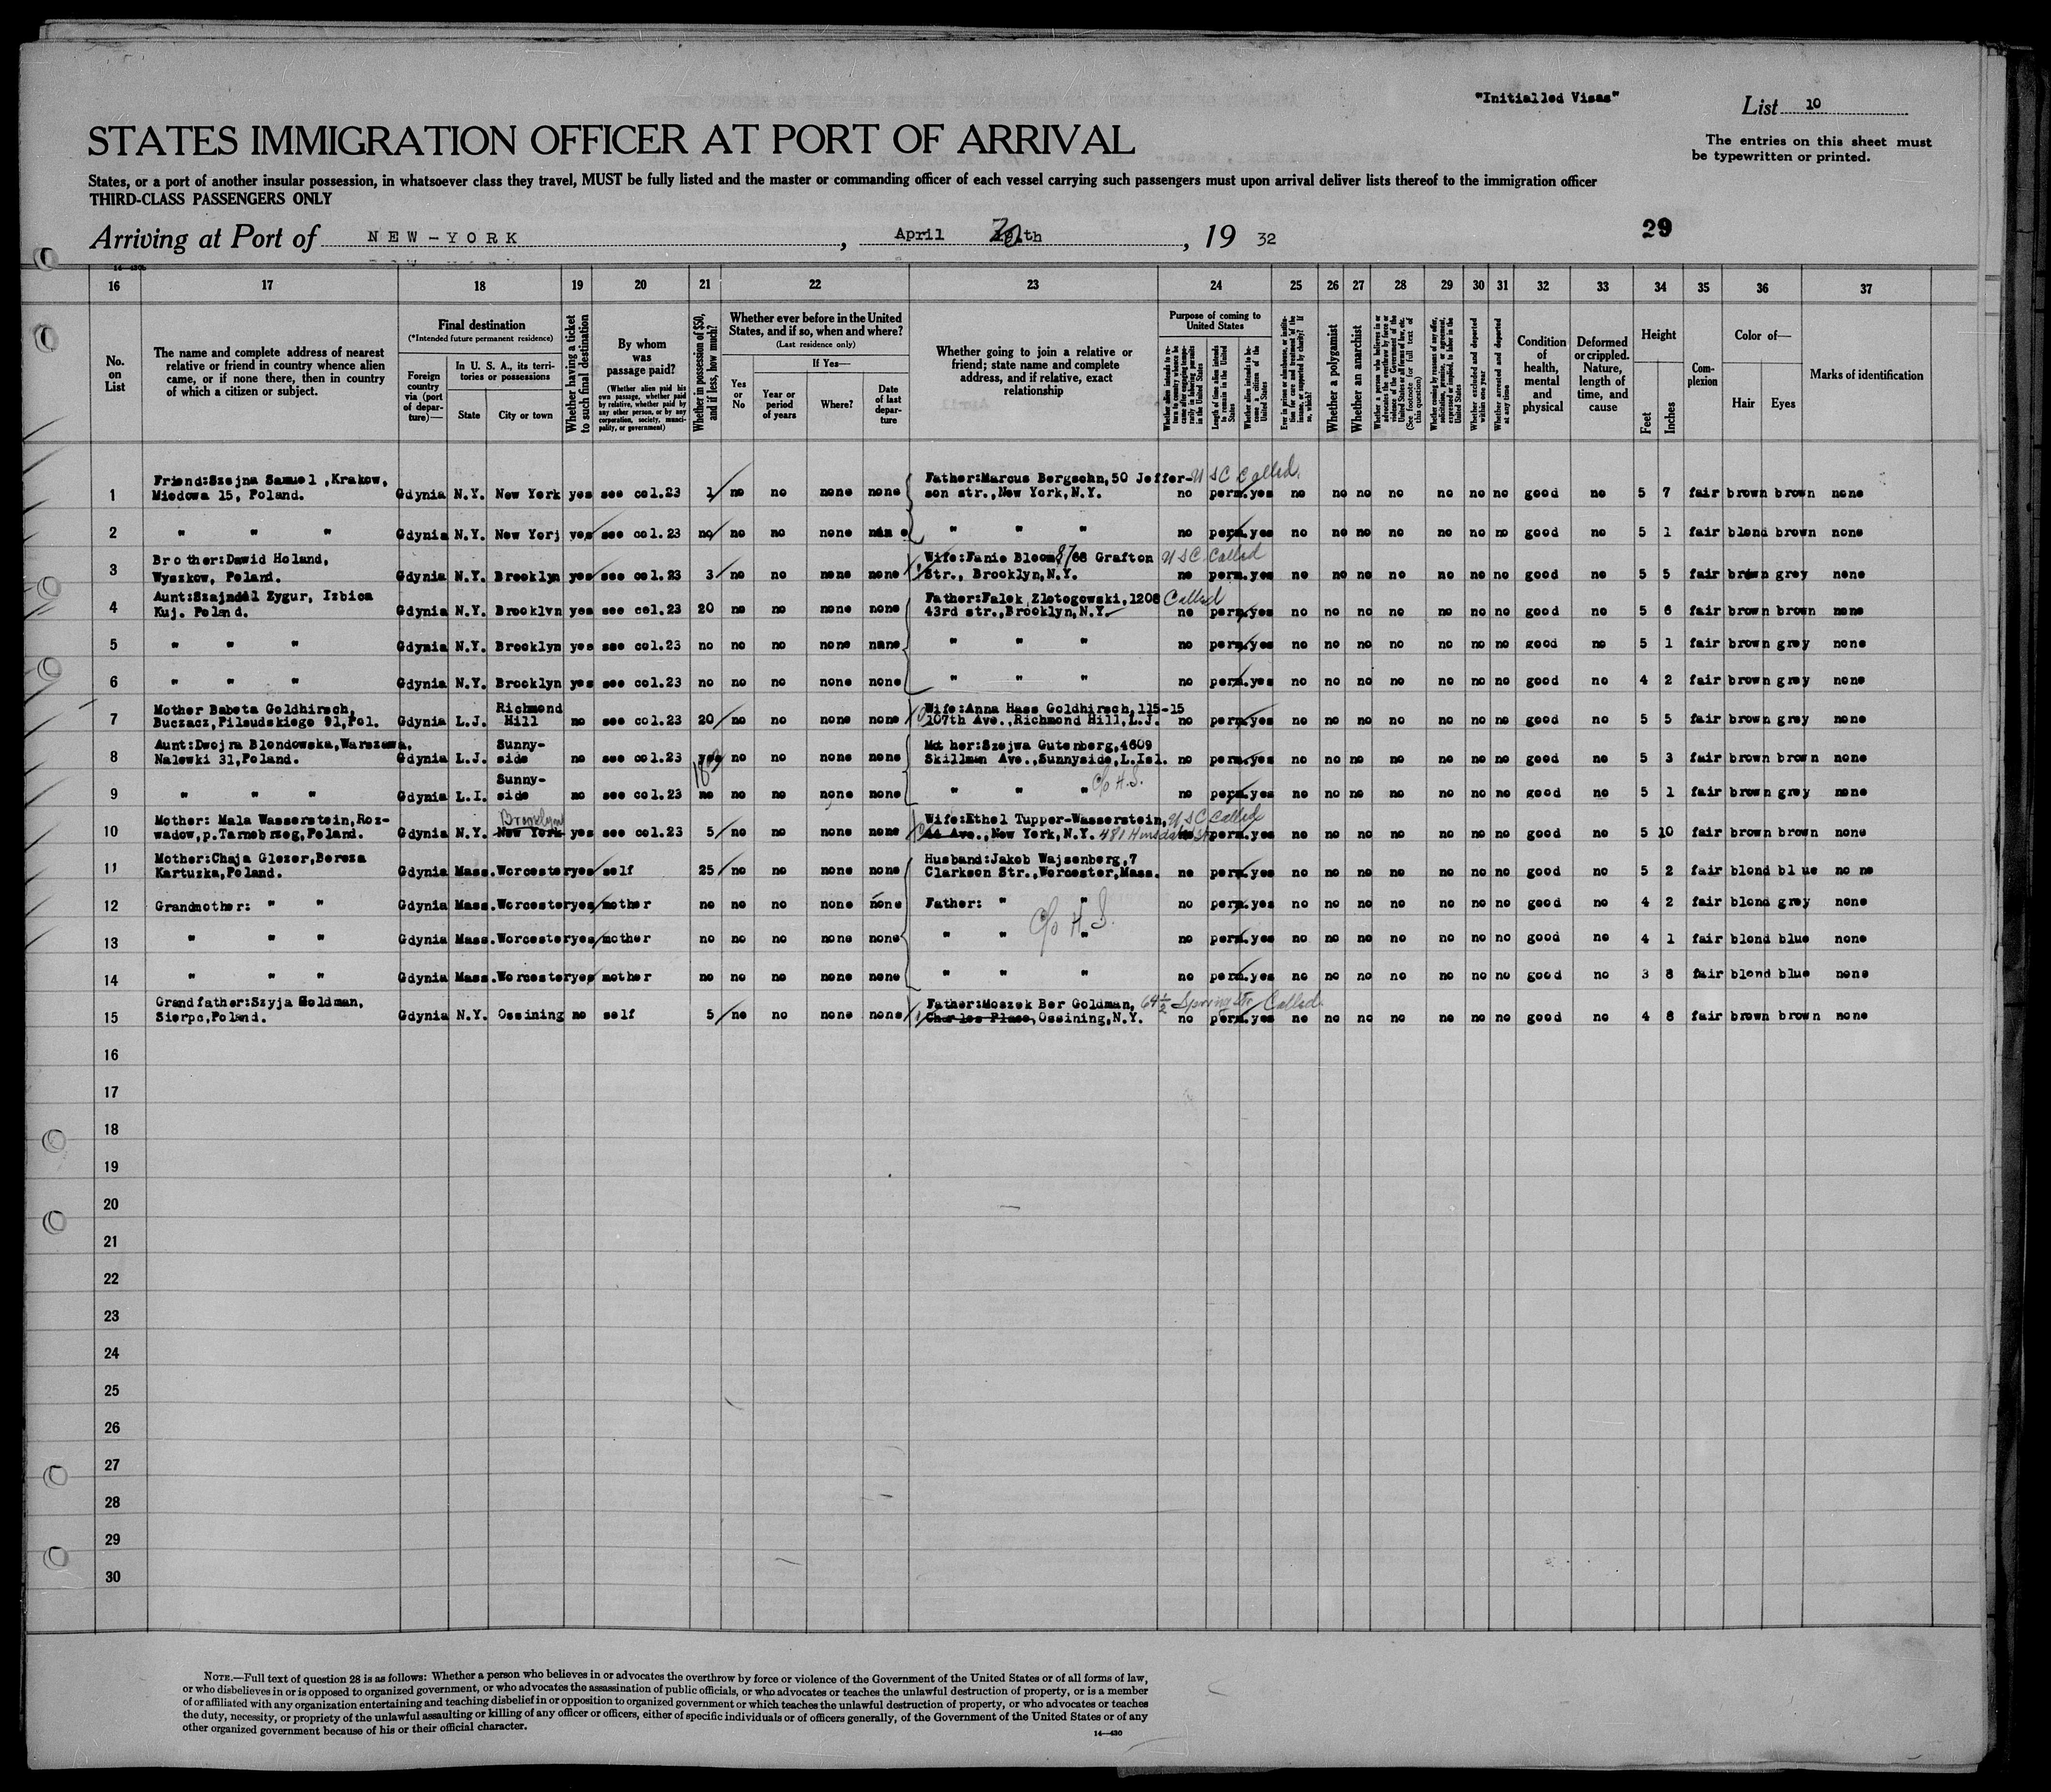 "Initialled Visas"
List 10
STATES IMMIGRATION OFFICER AT PORT OF ARRIVAL
The entries on this sheet must
be typewritten or printed.
States, or a port of another insular possession, in whatsoever class they travel, MUST be fully listed and the master or commanding officer of each vessel carrying such passengers must upon arrival deliver lists thereof to the immigration officer
THIRD-CLASS PASSENGERS ONLY
Arriving at Port of NEW-YORK, April 20th, 19 32
29
16 17 18 19 20 21 22 23 24 25 26 27 28 29 30 31 32 33 34 35 36 37
No. on List
The name and complete address of nearest
relative or friend in country whence alien
came, or if none there, then in country
of which a citizen or subject.
Final destination
(*Intended future permanent residence)
Foreign country via (port of departure)—
In U. S. A., its territories or possessions
State
City or town
Whether having a ticket to such final destination
By whom was passage paid?
(Whether alien paid his own passage, whether paid by relative, whether paid by any other person, or by any corporation, society, municipality, or government)
Whether in possession of $50, and if less, how much?
Whether ever before in the United States, and if so, when and where?
(Last residence only)
Yes or No
If Yes—
Year or period of years
Where?
Date of last departure
Whether going to join a relative or
friend; state name and complete
address, and if relative, exact
relationship
Purpose of coming to United States
Length of time alien intends to remain in the United States
Whether alien intends to become a citizen of the United States
Whether a polygamist
Whether an anarchist
Whether excluded and deported within one year
Whether arrested and deported at any time
Condition of health, mental and physical
Deformed or crippled. Nature, length of time, and cause
Height
Feet
Inches
Complexion
Color of—
Hair
Eyes
Marks of identification
Friend:Szejna Samuel ,Krakow, Father:Marcus Bergsohn,50 Jeffer- U S C Called
1 Miedowa 15, Poland. Gdynia N.Y. New York yes see col.23 1 no no none none son str.,New York,N.Y. no perm. yes no no no no no no no good no 5 7 fair brown brown none
2 " " " Gdynia N.Y. New Yorj yes see col.23 no no no none " " " no perm. yes no no no no no no no good no 5 1 fair blond brown none
Brother:Dawid Holand, Wife:Fanie Bloom, 87 68 Grafton U S C Called
3 Wyszkow, Poland. Gdynia N.Y. Brooklyn yes see col.23 3 no no none none Str., Brooklyn,N.Y. no perm. yes no no no no no no no good no 5 5 fair brown grey none
Aunt:Szajndel Zygur, Izbica Father:Falek Zlotogowski,1208 Called
4 Kuj. Poland. Gdynia N.Y. Brooklyn yes see col.23 20 no no none none 43rd str.,Brooklyn,N.Y. no perm. yes no no no no no no no good no 5 6 fair brown brown none
5 " " " Gdynia N.Y. Brooklyn yes see col.23 no no no none nane " " " no perm. yes no no no no no no no good no 5 1 fair brown grey none
6 " " " Gdynia N.Y. Brooklyn yes see col.23 no no no none none " " " no perm. yes no no no no no no no good no 4 2 fair brown grey none
Mother Babeta Goldhirsch, Richmond Wife:Anna Hass Goldhirsch,115-15
7 Buczacz,Pilsudskiego 91,Pol. Gdynia L.J. Hill no see col.23 20 no no none none 107th Ave.,Richmond Hill,L.J. no perm. yes no no no no no no no good no 5 5 fair brown grey none
Aunt:Dwojra Blondowska,Warszawa, Sunny- Mother:Szejwa Gutenberg,4609
8 Nalewki 31,Poland. Gdynia L.J. side no see col.23 no no none none Skillman Ave.,Sunnyside,L.Isl. no perm. yes no no no no no no no good no 5 3 fair brown brown none
Sunny- c/o H.S.
9 " " " Gdynia L.I. side no see col.23 no no no none none " " " no perm. yes no no no no no no no good no 5 1 fair brown grey none
Mother: Mala Wasserstein,Roz- Brooklyn Wife:Ethel Tupper-Wasserstein, U S C Called
10 wadow,p.Tarnobrzeg,Poland. Gdynia N.Y. New York yes see col.23 5 no no none none Ave.,New York,N.Y. 481 perm. yes no no no no no no no good no 5 10 fair brown brown none
Mother:Chaja Glezer,Bereza Husband:Jakob Wajsenberg,7
11 Kartuzka,Poland. Gdynia Mass. Worcester yes self 25 no no none none Clarkson Str.,Worcester,Mass. no perm. yes no no no no no no no good no 5 2 fair blond blue no ne
12 Grandmother: " " Gdynia Mass. Worcester yes mother no no no none none Father: " " no perm. yes no no no no no no no good no 4 2 fair blond grey none
c/o H.S.
13 " " " Gdynia Mass. Worcester yes mother no no no none none " " " no perm. yes no no no no no no no good no 4 1 fair blond blue none
14 " " " Gdynia Mass. Worcester yes mother no no no none none " " " no perm. yes no no no no no no no good no 3 8 fair blond blue none
Grandfather:Szyja Goldman, Father:Moszek Ber Goldman, 64½ Spring Str Called
15 Sierpc,Poland. Gdynia N.Y. Ossining no self 5 no no none none Charles Place, Ossining,N.Y. no perm. yes no no no no no no no good no 4 8 fair brown brown none
16
17
18
19
20
21
22
23
24
25
26
27
28
29
30
NOTE.—Full text of question 28 is as follows: Whether a person who believes in or advocates the overthrow by force or violence of the Government of the United States or of all forms of law,
or who disbelieves in or is opposed to organized government, or who advocates the assassination of public officials, or who advocates or teaches the unlawful destruction of property, or is a member
of or affiliated with any organization entertaining and teaching disbelief in or opposition to organized government or which teaches the unlawful destruction of property, or who advocates or teaches
the duty, necessity, or propriety of the unlawful assaulting or killing of any officer or officers, either of specific individuals or of officers generally, of the Government of the United States or of any
other organized government because of his or their official character.
14—430